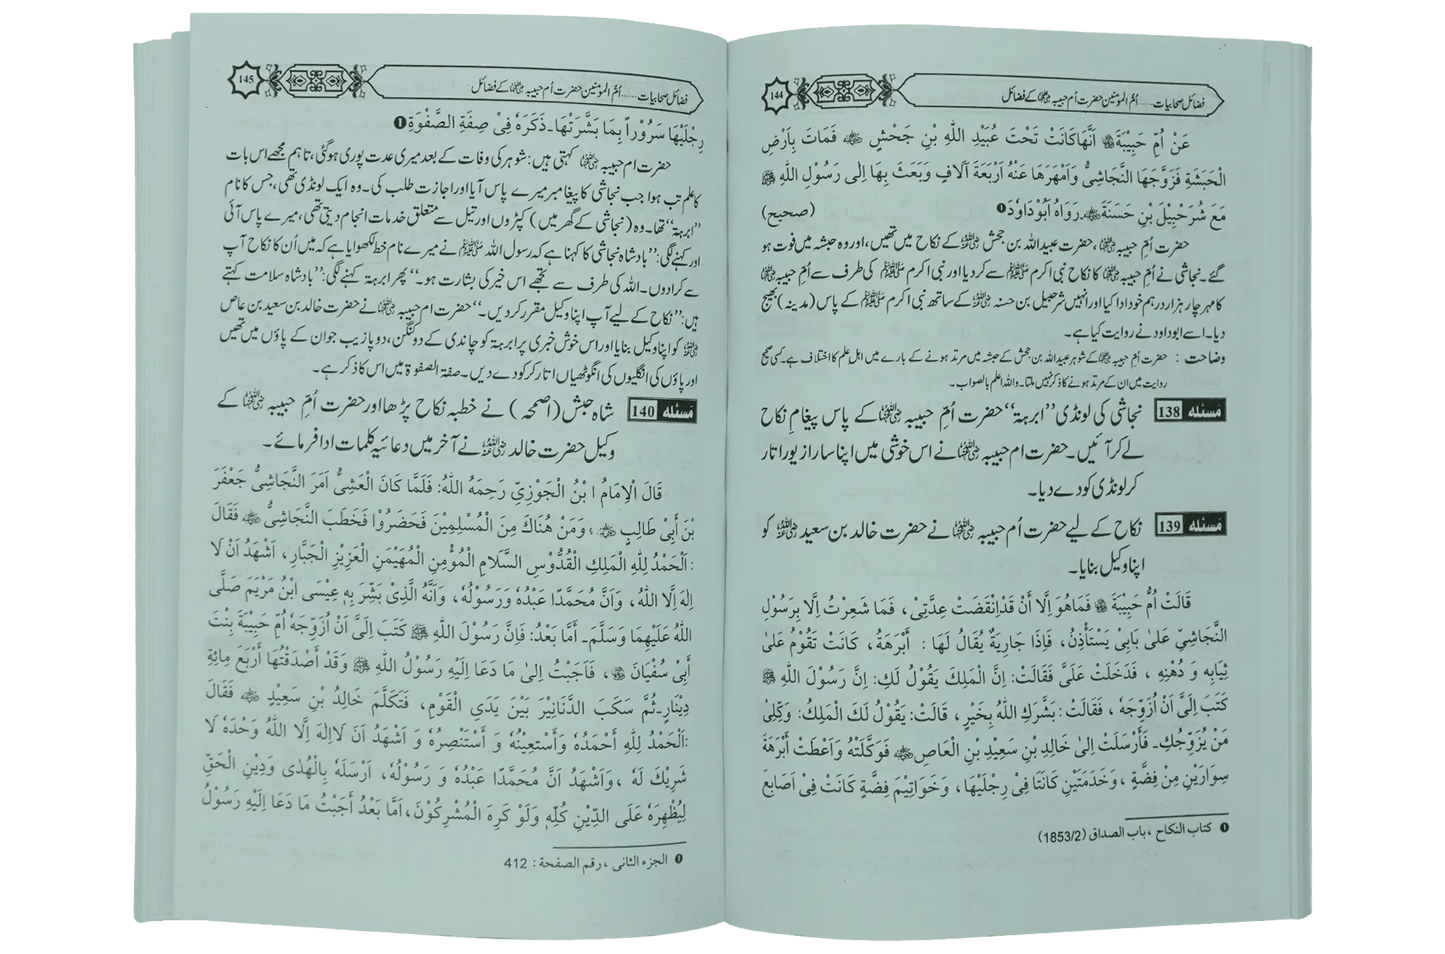 144
فضائل صحابیات...... اُمّ المؤمنین حضرت اُم حبیبہ ؓ کے فضائل
عَنْ اُمِّ حَبِيْبَةَ ؓ اَنَّهَا كَانَتْ تَحْتَ عُبَيْدِ اللّٰهِ بْنِ جَحْشٍ ؓ فَمَاتَ بِاَرْضِ
الْحَبَشَةِ فَزَوَّجَهَا النَّجَاشِىُّ وَاَمْهَرَهَا عَنْهُ اَرْبَعَةَ آلَافٍ وَبَعَثَ بِهَا اِلٰى رَسُوْلِ اللّٰهِ ﷺ
مَعَ شُرَحْبِيْلَ بْنِ حَسَنَةَ ؓ۔ رَوَاهُ اَبُوْدَاوٗدَ❶ (صحيح)
حضرت اُمّ حبیبہ ؓ، حضرت عبیداللہ بن جحش ؓ کے نکاح میں تھیں، اور وہ حبشہ میں فوت ہو
گئے۔ نجاشی نے اُمّ حبیبہ ؓ کا نکاح نبی اکرم ﷺ سے کردیا اور نبی اکرم ﷺ کی طرف سے اُمّ حبیبہ ؓ
کا مہر چار ہزار درہم خود ادا کیا اور انہیں شرحبیل بن حسنہ ؓ کے ساتھ نبی اکرم ﷺ کے پاس (مدینہ) بھیج
دیا۔ اسے ابوداود نے روایت کیا ہے۔
وضاحت : حضرت اُمّ حبیبہ ؓ کے شوہر عبیداللہ بن جحش کے حبشہ میں مرتد ہونے کے بارے میں اہل علم کا اختلاف ہے۔ کسی صحیح
روایت میں ان کے مرتد ہونے کا ذکر نہیں ملتا۔ واللہ اعلم بالصواب۔
مسئلہ 138 نجاشی کی لونڈی ”ابرہہ“ حضرت اُمّ حبیبہ ؓ کے پاس پیغامِ نکاح
لے کر آئیں۔ حضرت ام حبیبہ ؓ نے اس خوشی میں اپنا سارا زیور اتار
کر لونڈی کو دے دیا۔
مسئلہ 139 نکاح کے لیے حضرت اُم حبیبہ ؓ نے حضرت خالد بن سعید ؓ کو
اپنا وکیل بنایا۔
قَالَتْ اُمُّ حَبِيْبَةَ ؓ فَمَاهُوَ اِلَّا أَنْ قَدِانْقَضَتْ عِدَّتِىْ، فَمَا شَعِرْتُ اِلَّا بِرَسُوْلِ
النَّجَاشِىِّ عَلٰى بَابِىْ يَسْتَأْذِنُ، فَاِذَا جَارِيَةٌ يُقَالُ لَهَا : أَبْرَهَةُ، كَانَتْ تَقُوْمُ عَلٰى
ثِيَابِهٖ وَ دُهْنِهٖ ، فَدَخَلَتْ عَلَىَّ فَقَالَتْ: اِنَّ الْمَلِكَ يَقُوْلُ لَكِ: اِنَّ رَسُوْلَ اللّٰهِ ﷺ
كَتَبَ اِلَىَّ اَنْ اُزَوِّجَهٗ ، فَقَالَتْ: بَشَّرَكِ اللّٰهُ بِخَيْرٍ، قَالَتْ: يَقُوْلُ لَكِ الْمَلِكُ: وَكِّلِىْ
مَنْ يُزَوِّجُكِ۔ فَأَرْسَلَتْ اِلٰى خَالِدِ بْنِ سَعِيْدِ بْنِ الْعَاصِ ؓ فَوَكَّلَتْهُ وَاَعْطَتْ أَبْرَهَةَ
سِوَارَيْنِ مِنْ فِضَّةٍ ، وَخَدَمَتَيْنِ كَانَتَا فِىْ رِجْلَيْهَا، وَخَوَاتِيْمَ فِضَّةٍ كَانَتْ فِىْ اَصَابِعَ
❶ كتاب النكاح ، باب الصداق (1853/2)
145
فضائل صحابیات...... اُمّ المؤمنین حضرت اُم حبیبہ ؓ کے فضائل
رِجْلَيْهَا سَرُوْراً بِمَا بَشَّرَتْهَا۔ ذَكَرَهٗ فِىْ صِفَةِ الصَّفْوَةِ❶
حضرت ام حبیبہ ؓ کہتی ہیں: شوہر کی وفات کے بعد میری عدت پوری ہوگئی، تاہم مجھے اس بات
کا علم تب ہوا جب نجاشی کا پیغامبر میرے پاس آیا اور اجازت طلب کی۔ وہ ایک لونڈی تھی، جس کا نام
”ابرہہ“ تھا۔ وہ (نجاشی کے گھر میں) کپڑوں اور تیل سے متعلق خدمات انجام دیتی تھی، میرے پاس آئی
اور کہنے لگی: ”بادشاہ نجاشی کا کہنا ہے کہ رسول اللہ ﷺ نے میرے نام خط لکھوایا ہے کہ میں اُن کا نکاح آپ
سے کرادوں۔ اللہ کی طرف سے تجھے اس خیر کی بشارت ہو۔“ پھر ابرہہ کہنے لگی: ”بادشاہ سلامت کہتے
ہیں: ”نکاح کے لیے آپ اپنا وکیل مقرر کردیں۔“ حضرت ام حبیبہ ؓ نے حضرت خالد بن سعید بن عاص
ؓ کو اپنا وکیل بنایا اور اس خوش خبری پر ابرہہ کو چاندی کے دو کنگن، دو پازیب جوان کے پاؤں میں تھیں
اور پاؤں کی انگلیوں کی انگوٹھیاں اتار کر کو دے دیں۔ صفۃ الصفوۃ میں اس کا ذکر ہے۔
مسئلہ 140 شاہ حبش (اصحمہ) نے خطبہ نکاح پڑھا اور حضرت اُمّ حبیبہ ؓ کے
وکیل حضرت خالد ؓ نے آخر میں دعائیہ کلمات ادا فرمائے۔
قَالَ الْاِمَامُ ا بْنُ الْجَوْزِىِّ رَحِمَهُ اللّٰهُ: فَلَمَّا كَانَ الْعَشِىُّ اَمَرَ النَّجَاشِىُّ جَعْفَرَ
بْنَ أَبِىْ طَالِبٍ ؓ ، وَمَنْ هُنَاكَ مِنَ الْمُسْلِمِيْنَ فَحَضَرُوْا فَخَطَبَ النَّجَاشِىُّ ؓ فَقَالَ
:اَلْحَمْدُ لِلّٰهِ الْمَلِكِ الْقُدُّوْسِ السَّلَامِ الْمُؤْمِنِ الْمُهَيْمَنِ الْعَزِيْزِ الْجَبَّارِ، اَشْهَدُ اَنْ لَا
اِلٰهَ اِلَّا اللّٰهُ، وَاَنَّ مُحَمَّدًا عَبْدُهٗ وَرَسُوْلُهٗ، وَاَنَّهُ الَّذِىْ بَشَّرَ بِهٖ عِيْسَى ابْنُ مَرْيَمَ صَلَّى
اللّٰهُ عَلَيْهِمَا وَسَلَّمَ۔ أَمَّا بَعْدُ: فَاِنَّ رَسُوْلَ اللّٰهِ ﷺ كَتَبَ اِلَىَّ اَنْ اُزَوِّجَهٗ اُمَّ حَبِيْبَةَ بِنْتَ
أَبِىْ سُفْيَانَ ؓ ، فَاَجَبْتُ اِلٰى مَا دَعَا اِلَيْهِ رَسُوْلُ اللّٰهِ ﷺ وَقَدْ اَصْدَقْتُهَا أَرْبَعَ مِائَةِ
دِيْنَارٍ۔ ثُمَّ سَكَبَ الدَّنَانِيْرَ بَيْنَ يَدَىِ الْقَوْمِ، فَتَكَلَّمَ خَالِدُ بْنِ سَعِيْدٍ ؓ فَقَالَ
:اَلْحَمْدُ لِلّٰهِ اَحْمَدُهٗ وَأَسْتَعِيْنُهٗ وَ أَسْتَنْصِرُهٗ وَ اَشْهَدُ اَنْ لَااِلٰهَ اِلَّا اللّٰهُ وَحْدَهٗ لَا
شَرِيْكَ لَهٗ ، وَاَشْهَدُ اَنَّ مُحَمَّدًا عَبْدُهٗ وَ رَسُوْلُهٗ، اَرْسَلَهٗ بِالْهُدٰى وَدِيْنِ الْحَقِّ
لِيُظْهِرَهٗ عَلَى الدِّيْنِ كُلِّهٖ وَلَوْ كَرِهَ الْمُشْرِكُوْنَ، اَمَّا بَعْدُ اَجَبْتُ مَا دَعَا اِلَيْهِ رَسُوْلُ
❶ الجزء الثانى ، رقم الصفحة : 412